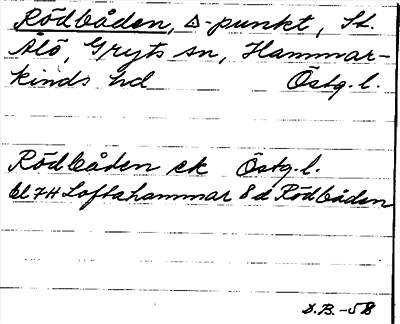 Rödbåden, △-punkt, St.
Ålö, Gryts sn, Hammar-
kinds hd Östg.l.
Rödbåden ek Östg.l.
bl 7H Loftahammar 8 d Rödbåden
D.B.-58